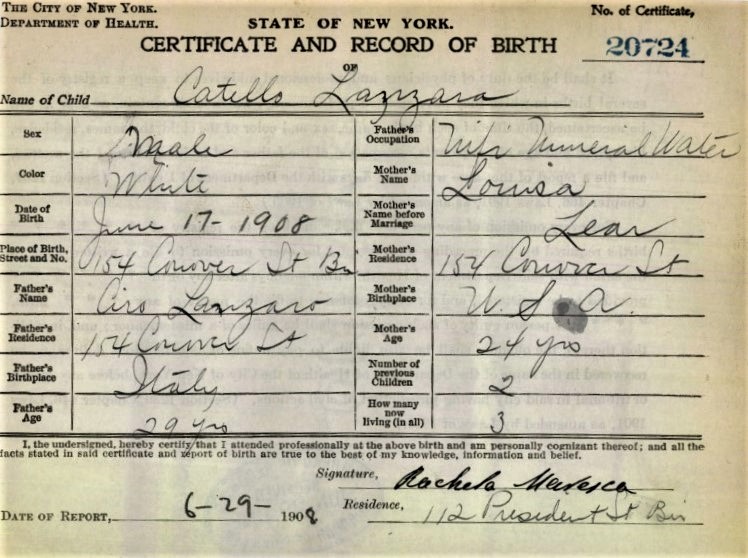 THE CITY OF NEW YORK.
DEPARTMENT OF HEALTH.
STATE OF NEW YORK.
No. of Certificate,
CERTIFICATE AND RECORD OF BIRTH
20724
OF
Name of Child Catello Lanzara
Sex Male
Father's Occupation Mfr Mineral Water
Color White
Mother's Name Louisa
Date of Birth June 17-1908
Mother's Name before Marriage Lear
Place of Birth, Street and No. 154 Conover St
Mother's Residence 154 Conover St
Father's Name Ciro Lanzaro
Mother's Birthplace U.S.A.
Father's Residence 154 Conover St
Mother's Age 24 yrs
Father's Birthplace Italy
Number of previous Children 2
Father's Age 29 yrs
How many now living (in all) 3
I, the undersigned, hereby certify that I attended professionally at the above birth and am personally cognizant thereof; and all the
facts stated in said certificate and report of birth are true to the best of my knowledge, information and belief.
Signature, Rachela Maresca
Residence, 112 President St
DATE OF REPORT, 6-29- 1908